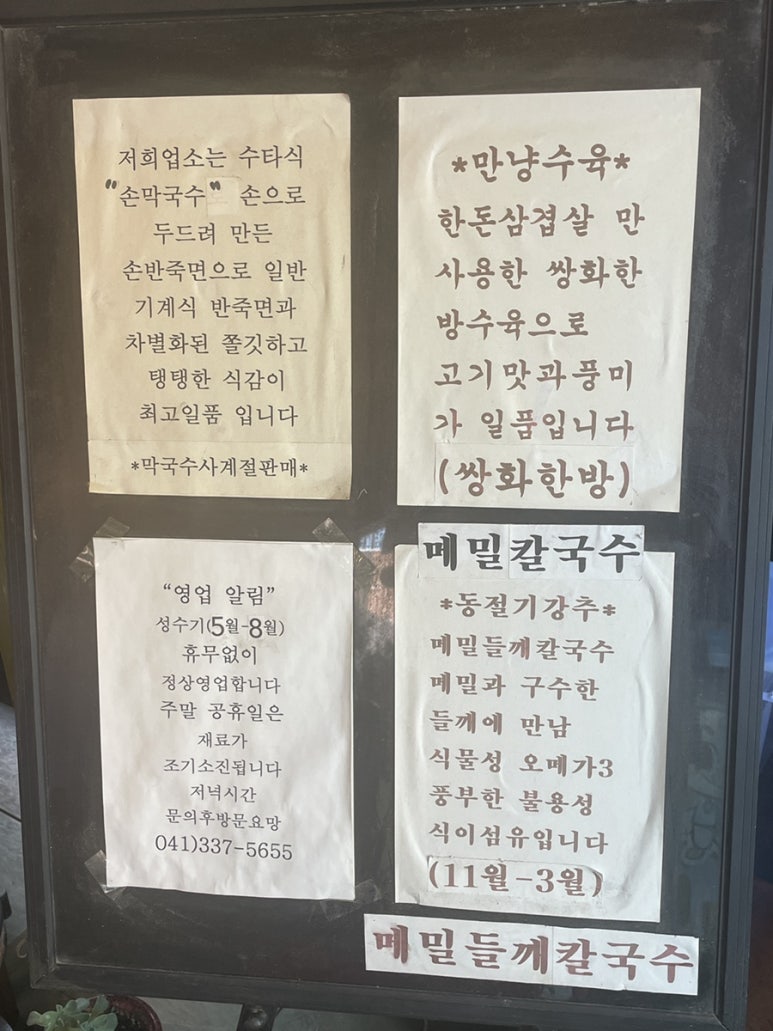 저희업소는 수타식
"손막국수" 손으로
두드려 만든
손반죽면으로 일반
기계식 반죽면과
차별화된 쫄깃하고
탱탱한 식감이
최고일품 입니다
*막국수사계절판매*
*만냥수육*
한돈삼겹살 만
사용한 쌍화한
방수육으로
고기맛과풍미
가 일품입니다
(쌍화한방)
"영업 알림"
성수기(5월-8월)
휴무없이
정상영업합니다
주말 공휴일은
재료가
조기소진됩니다
저녁시간
문의후방문요망
041)337-5655
메밀칼국수
*동절기강추*
메밀들깨칼국수
메밀과 구수한
들깨에 만남
식물성 오메가3
풍부한 불용성
식이섬유입니다
(11월-3월)
메밀들깨칼국수